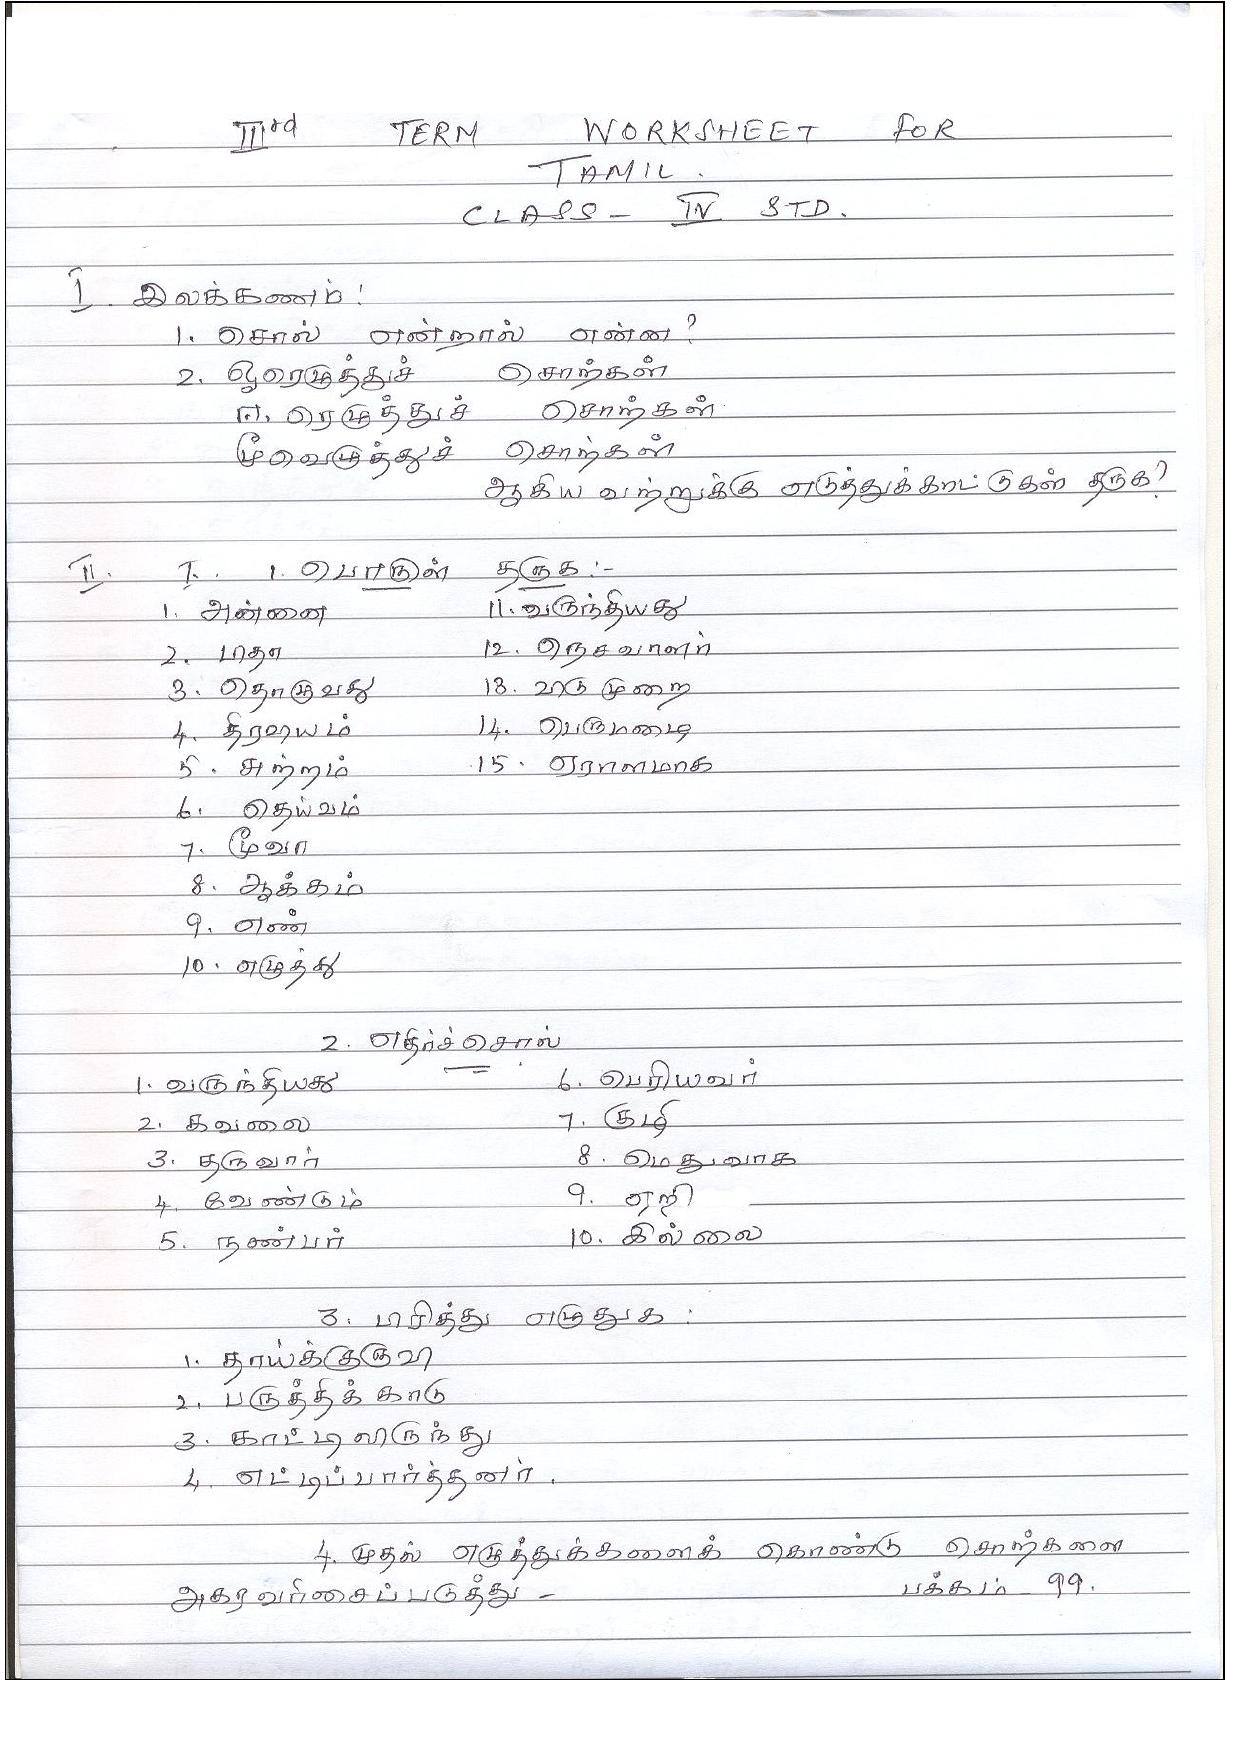 IIIrd TERM WORKSHEET FOR
TAMIL.
CLASS - IV STD.
I. இலக்கணம் :
1. சொல் என்றால் என்ன?
2. ஓரெழுத்துச் சொற்கள்
ஈரெழுத்துச் சொற்கள்
மூவெழுத்துச் சொற்கள்
ஆகிய வற்றுக்கு எடுத்துக்காட்டுகள் தருக?
II. I. 1. பொருள் தருக :-
1. அன்னை 11. வருந்தியது
2. மாதா 12. நெசவாளர்
3. தொழுவது 13. மறு முறை
4. திரவியம் 14. பெருமழை
5. சுற்றம் 15. ஏராளமாக
6. தெய்வம்
7. மூவா
8. ஆக்கம்
9. எண்
10. எழுத்து
2. எதிர்ச்சொல்
1. வருந்தியது 6. பெரியவர்
2. கவலை 7. குழி
3. தருவார் 8. மெதுவாக
4. வேண்டும் 9. ஏறி
5. நண்பர் 10. இல்லை
3. பிரித்து எழுதுக :
1. தாய்க்குருவி
2. பருத்திக் காடு
3. காட்டிலிருந்து
4. எட்டிப்பார்த்தனர்.
4. முதல் எழுத்துக்களைக் கொண்டு சொற்களை
அகரவரிசைப்படுத்து - பக்கம் - 99.